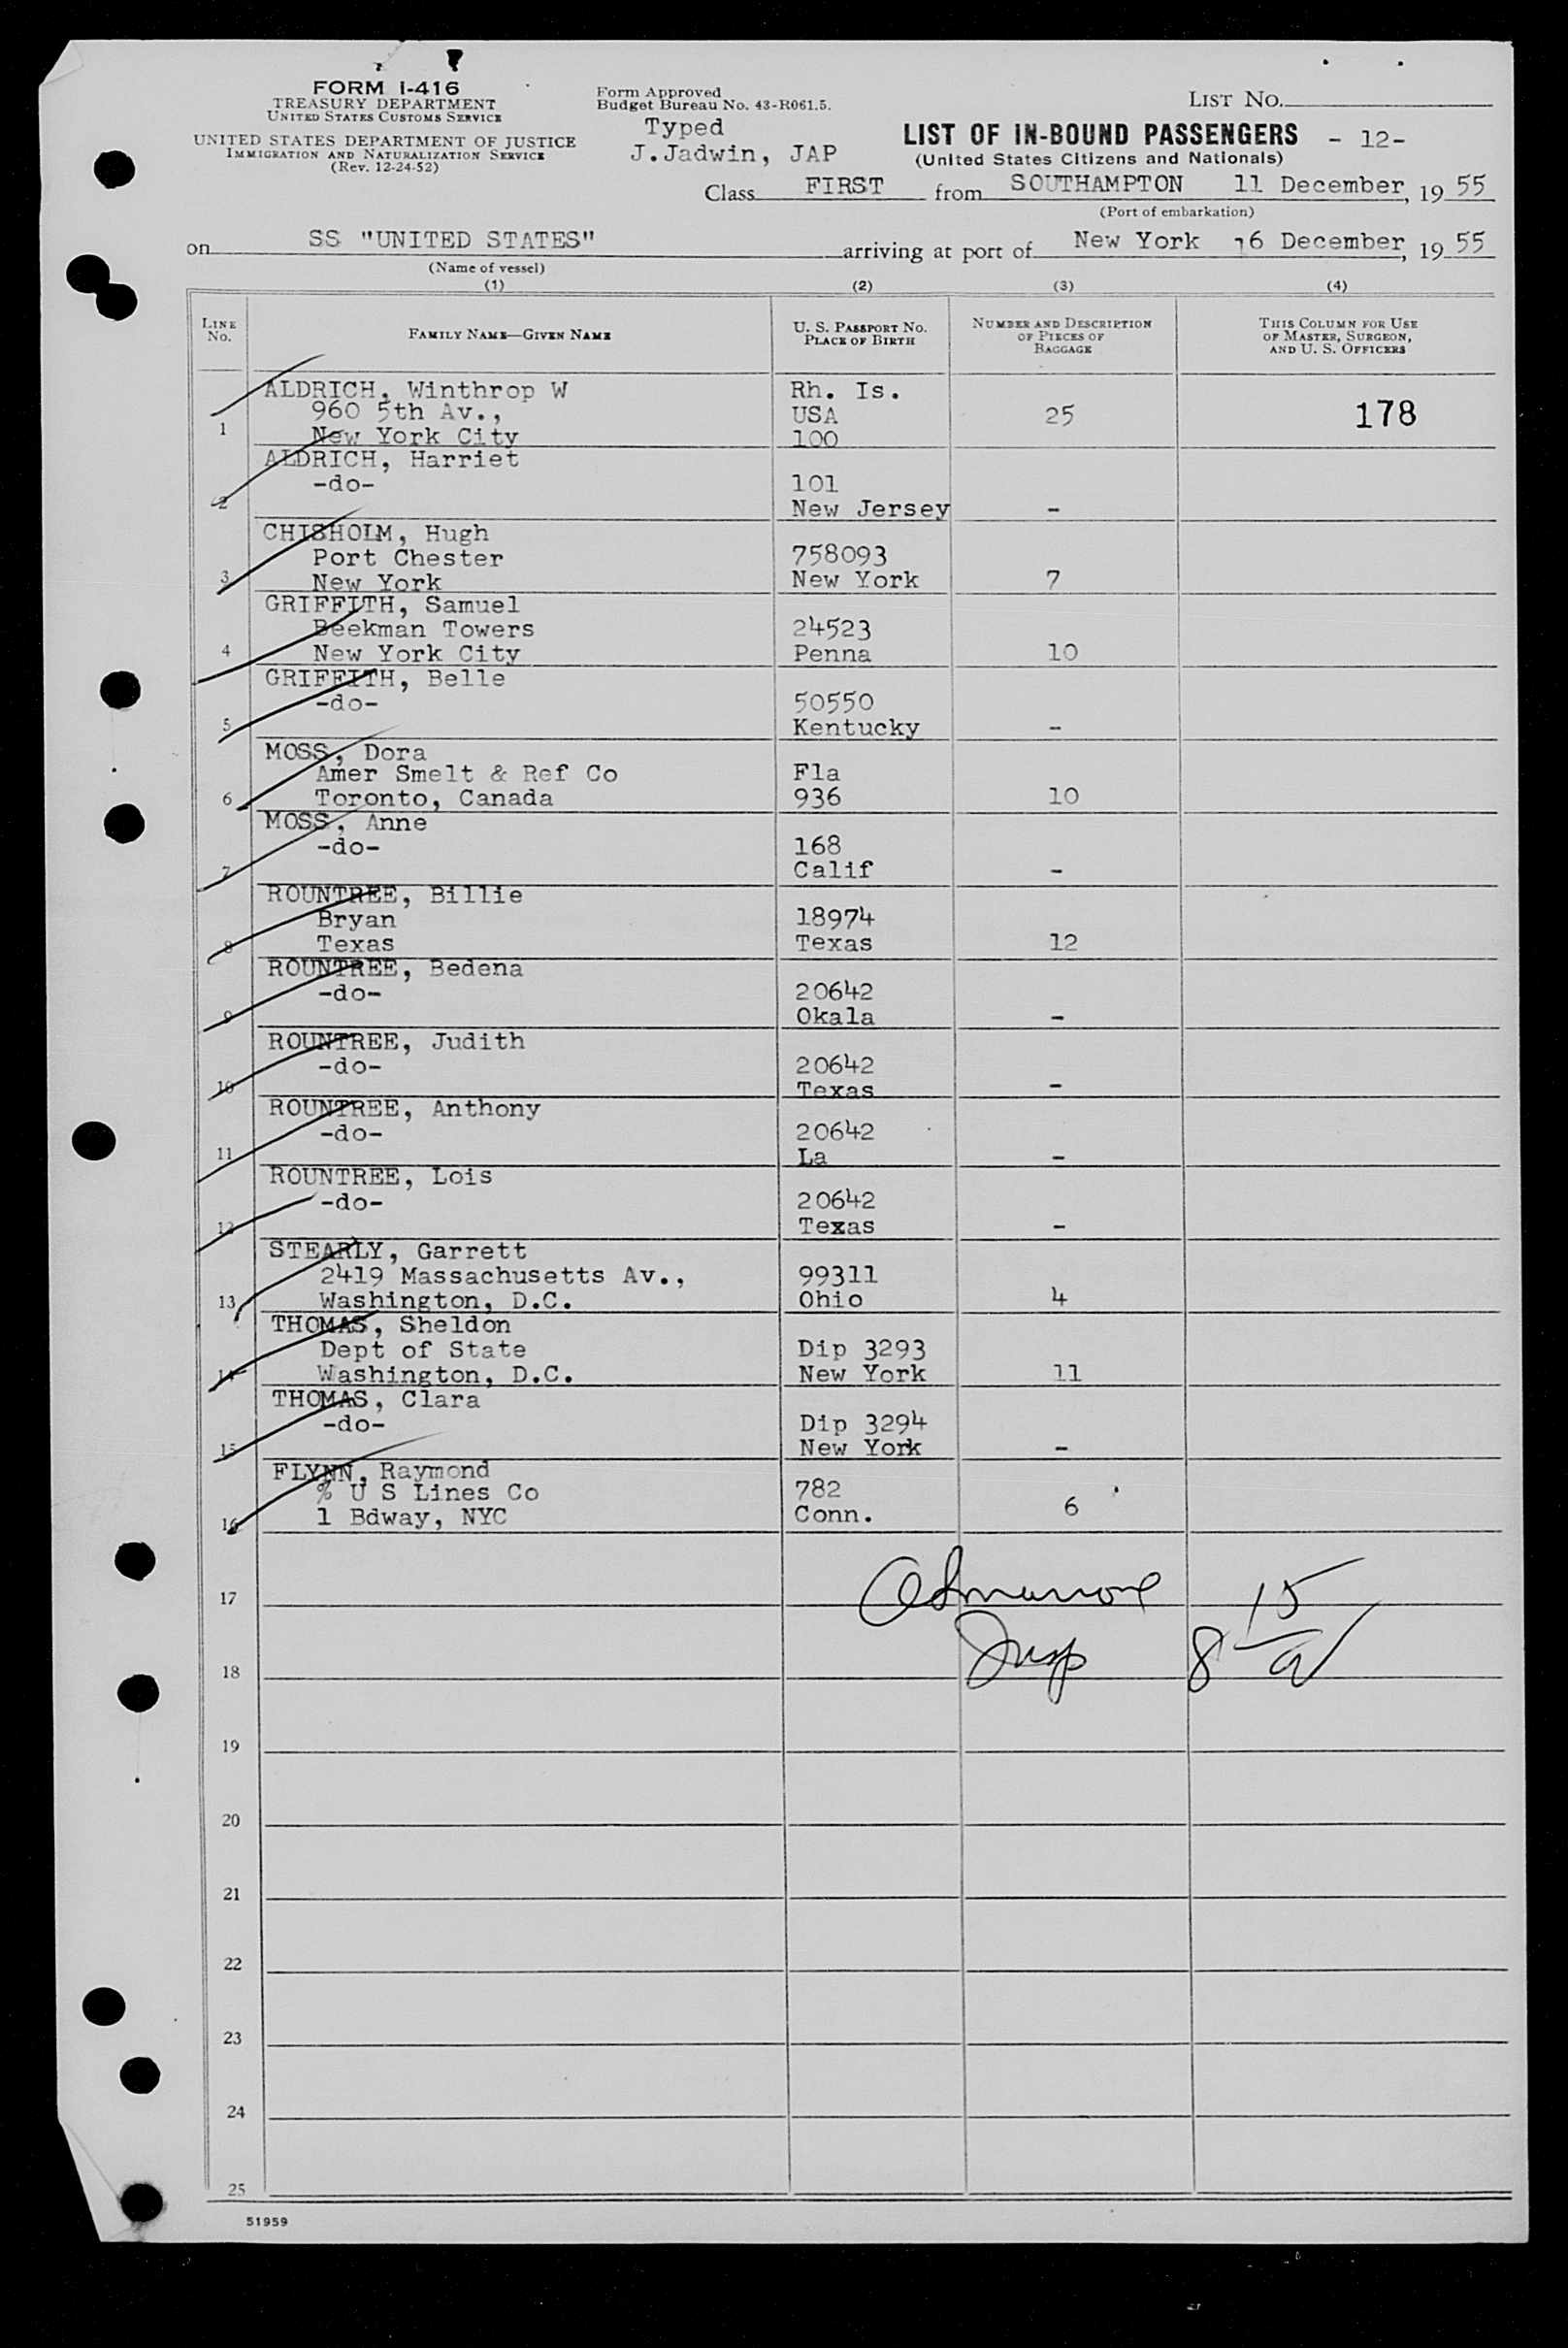 FORM I-416
TREASURY DEPARTMENT
UNITED STATES CUSTOMS SERVICE
UNITED STATES DEPARTMENT OF JUSTICE
IMMIGRATION AND NATURALIZATION SERVICE
(Rev. 12-24-52)
Form Approved
Budget Bureau No. 43-R061.5.
Typed
J.Jadwin, JAP
LIST No.
LIST OF IN-BOUND PASSENGERS - 12-
(United States Citizens and Nationals)
Class FIRST from SOUTHAMPTON 11 December, 19 55
(Port of embarkation)
on SS "UNITED STATES" arriving at port of New York 16 December, 19 55
(Name of vessel)
(1) (2) (3) (4)
LINE No. FAMILY NAME—GIVEN NAME U. S. PASSPORT No. PLACE OF BIRTH NUMBER AND DESCRIPTION OF PIECES OF BAGGAGE THIS COLUMN FOR USE OF MASTER, SURGEON, AND U. S. OFFICERS
ALDRICH, Winthrop W Rh. Is.
960 5th Av., USA 25 178
1 New York City 100
ALDRICH, Harriet
-do- 101
2 New Jersey -
CHISHOLM, Hugh
Port Chester 758093
3 New York New York 7
GRIFFITH, Samuel
Beekman Towers 24523
4 New York City Penna 10
GRIFFITH, Belle
-do- 50550
5 Kentucky -
MOSS, Dora
Amer Smelt & Ref Co Fla
6 Toronto, Canada 936 10
MOSS, Anne
-do- 168
7 Calif -
ROUNTREE, Billie
Bryan 18974
8 Texas Texas 12
ROUNTREE, Bedena
-do- 20642
9 Okala -
ROUNTREE, Judith
-do- 20642
10 Texas -
ROUNTREE, Anthony
-do- 20642
11 La -
ROUNTREE, Lois
-do- 20642
12 Texas -
STEARLY, Garrett
2419 Massachusetts Av., 99311
13 Washington, D.C. Ohio 4
THOMAS, Sheldon
Dept of State Dip 3293
14 Washington, D.C. New York 11
THOMAS, Clara
-do- Dip 3294
15 New York -
FLYNN, Raymond
% U S Lines Co 782
16 1 Bdway, NYC Conn. 6
17 15
18 Insp 8
19
20
21
22
23
24
25
51959